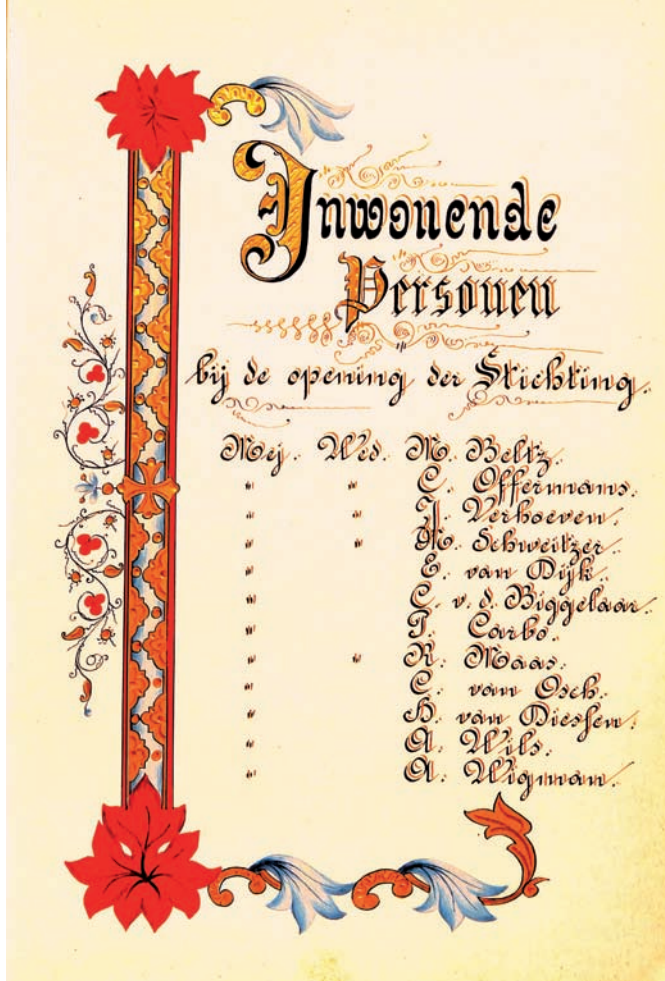 Inwonende
Personen
bij de opening der Stichting.
Mej. Wed. M. Beltz.
" " C. Offermans.
" " J. Verhoeven.
" " M. Schweitzer.
" E. van Dijk.
" C. v. d. Biggelaar.
" P. Carbo.
" " R. Maas.
" C. van Osch.
" H. van Diessen.
" A. Wils.
" A. Wigman.